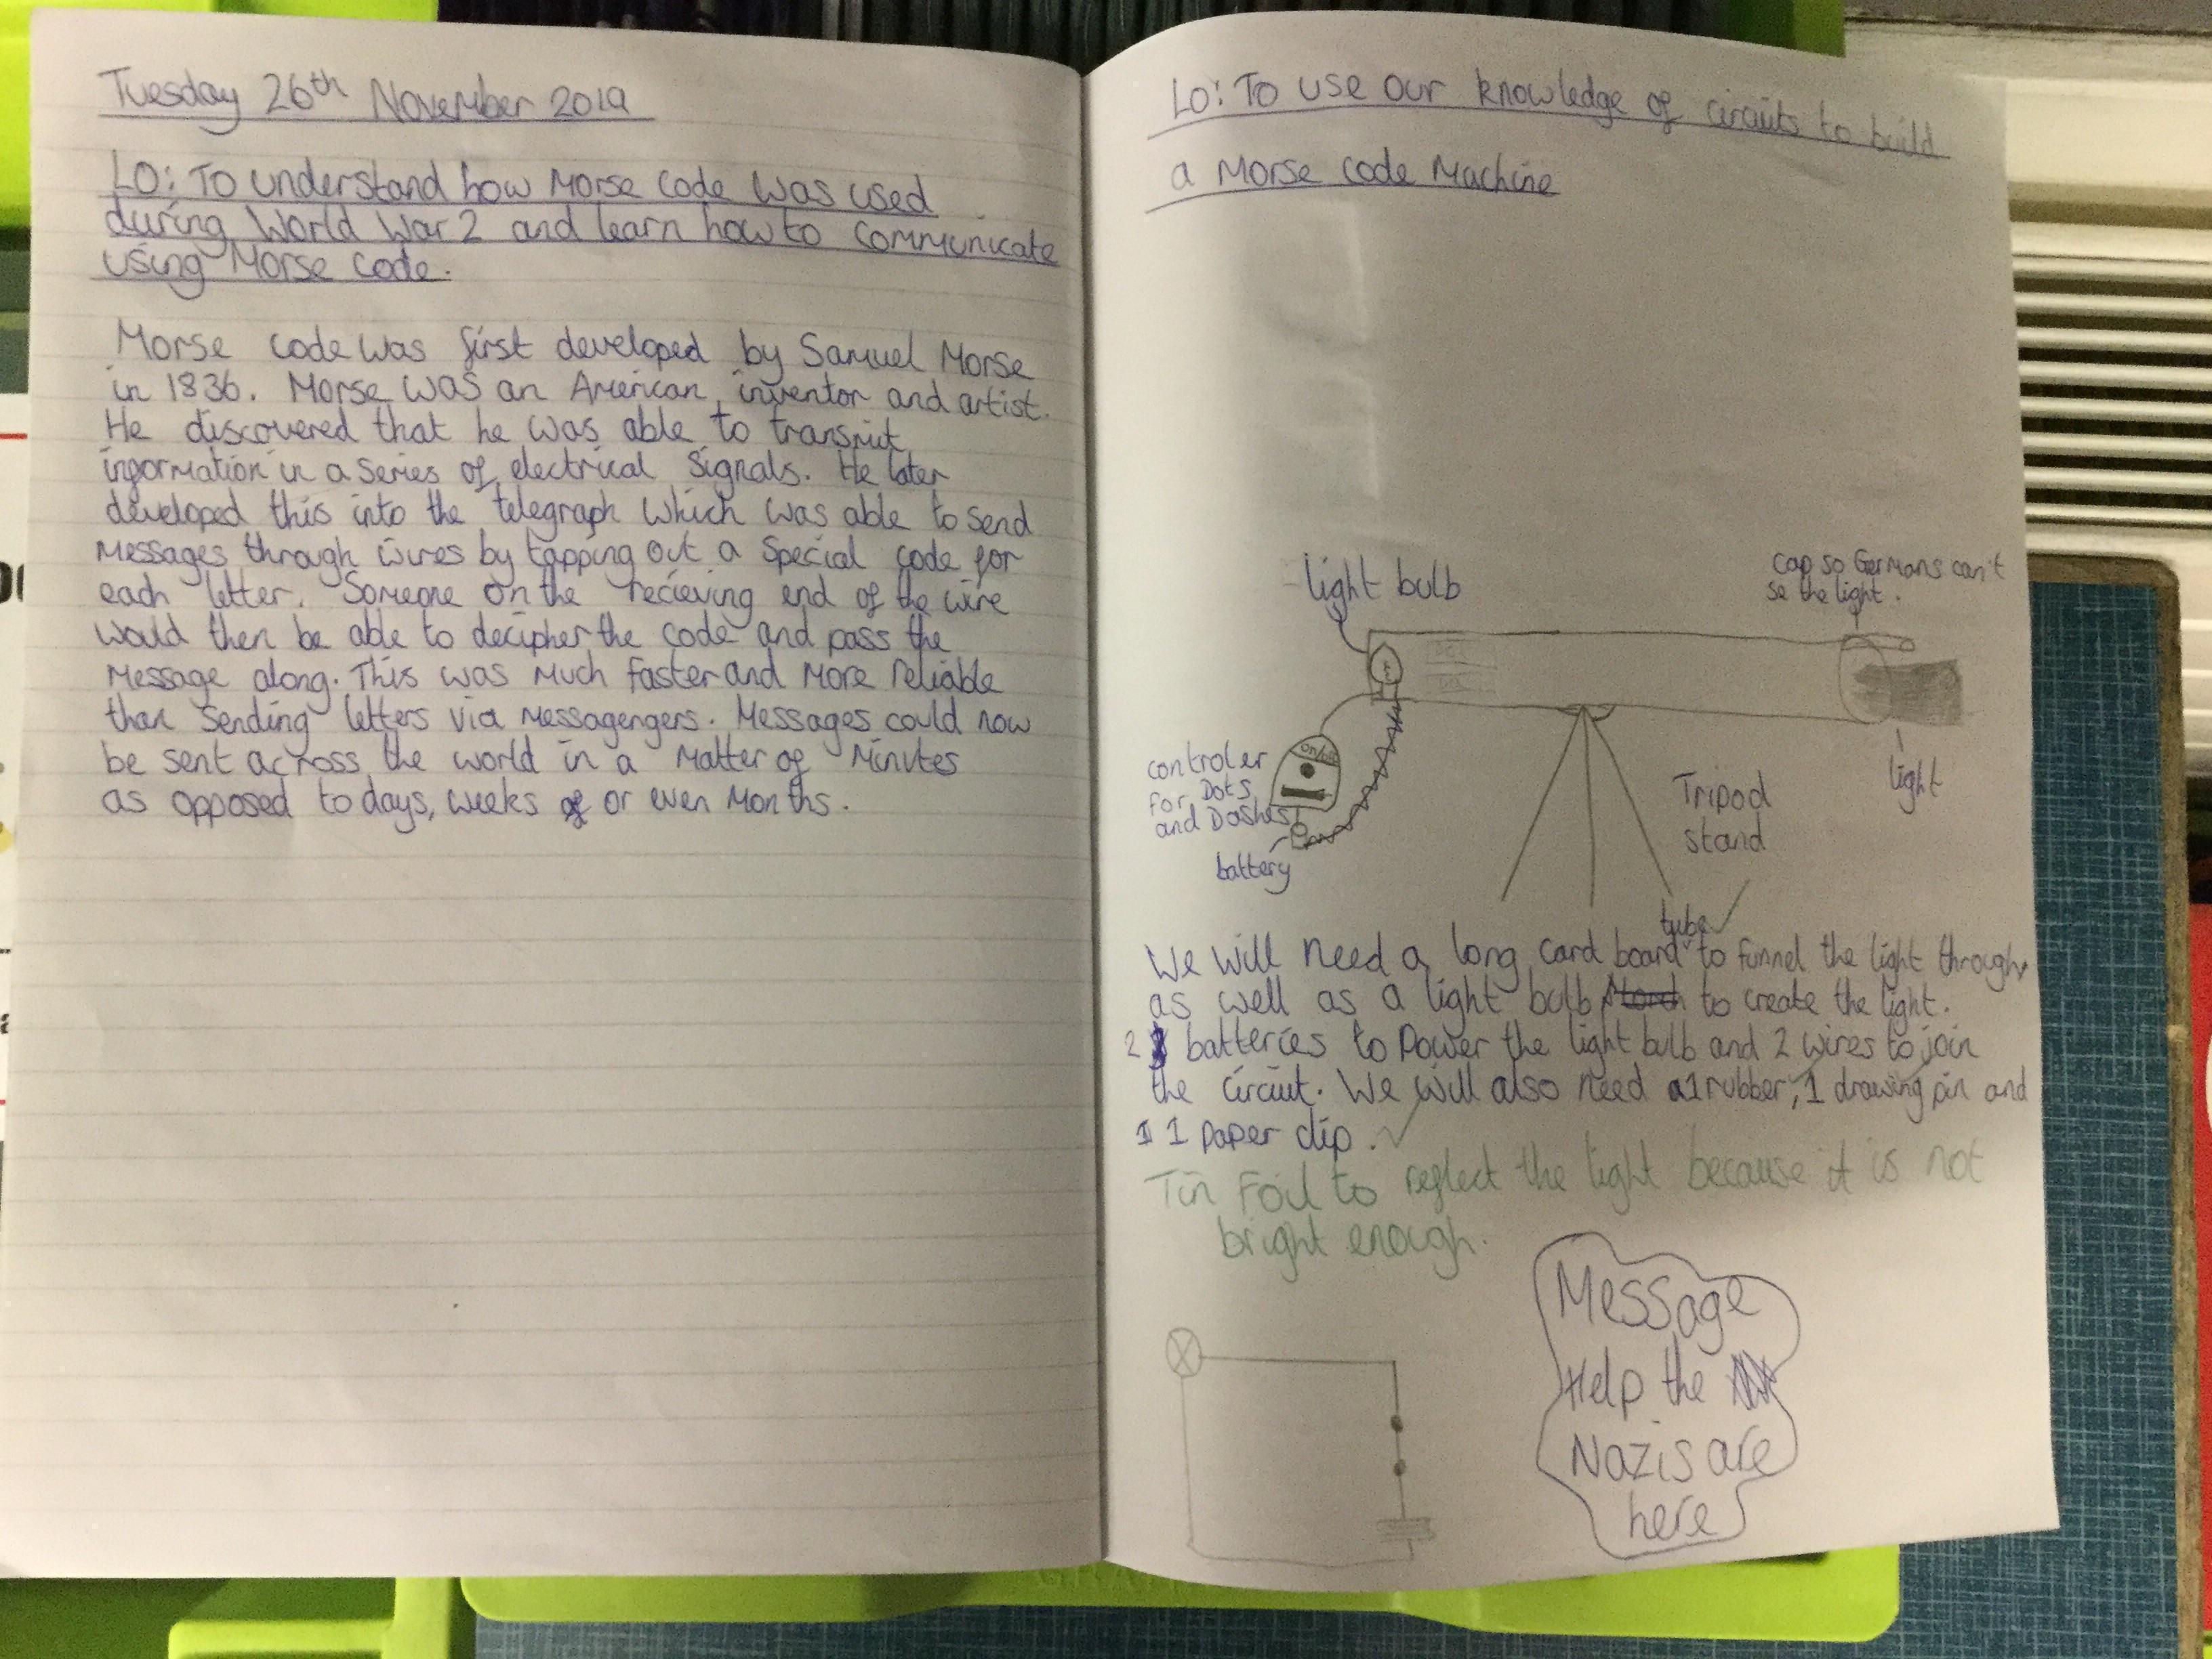 Tuesday 26th November 2019
LO: To understand how Morse code was used
during World War 2 and learn how to communicate
using Morse code.
Morse code was first developed by Samuel Morse
in 1836. Morse was an American inventor and artist.
He discovered that he was able to transmit
information in a series of electrical signals. He later
developed this into the telegraph which was able to send
messages through wires by tapping out a special code for
each letter. Someone on the recieving end of the wire
would then be able to decipher the code and pass the
message along. This was much faster and more reliable
than sending letters via messagengers. Messages could now
be sent across the world in a matter of minutes
as opposed to days, weeks or even months.
LO: To use our knowledge of circuits to build
a Morse code Machine
light bulb
cap so Germans can't
se the light.
on/off
controler
for Dots
and Dashes
battery
Tripod
stand
light
tube
We will need a long card board to funnel the light through,
as well as a light bulb to create the light.
2 batteries to power the light bulb and 2 wires to join
the circiut. We will also need 1 rubber, 1 drawing pin and
1 paper clip.
Tin Foil to reflect the light because it is not
bright enough.
Message
Help the
Nazis are
here